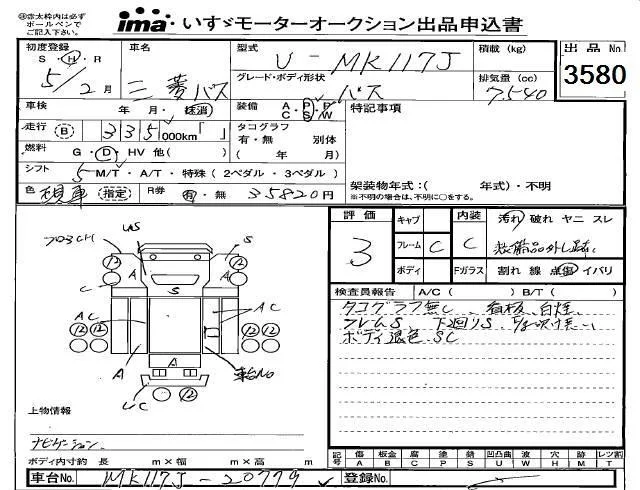 ㊟赤太枠内は必ず
ボールペンで
ご記入下さい。
ima いすゞモーターオークション出品申込書
初度登録 車名 型式 U-MK117J 積載(kg) 出品No
S・H・R 三菱バス グレード・ボディ形状 排気量(cc) 3580
5/2月 バス 7,540
車検 年 月・抹消 装備 A・P・P C S W 特記事項
走行 B 335 000km「 」 タコグラフ
有・無 別体
燃料 G・D・HV 他( ) ( 年 月)
シフト 5 M/T・A/T・特殊(2ペダル・3ペダル) 架装物年式:( 年式)・不明
色 (指定) R券 有・無 35820円 ※不明の場合は、不明に○をする。
評価 キャブ 内装 汚れ 破れ ヤニ スレ
3 フレーム C C 装備品外し跡
ボディ Fガラス 割れ 線 点傷 イバリ
検査員報告 A/C( ) B/T( )
タコグラフ無し、看板、白煙
フレームS 下回りS
ボディ退色 SC
フロ3CH US S
12 A 12
C S
AC AC
12 12 12 12
A A 車台No
UC 12
上物情報
ナビゲーション
ボディ内寸約 長 m×幅 m×高 m
記号 傷 A 板金 B 腐 C 塗 P 錆 S 凹凸曲 U 波 W 穴 H 跡 M レンズ割 T
車台No. MK117J-20779 登録No.